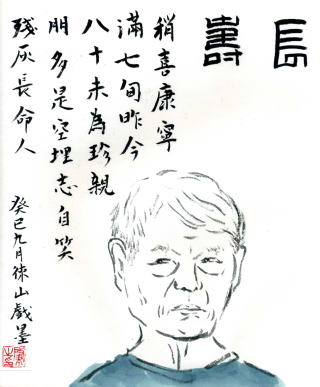 長壽
稍喜康寧
滿七旬昨今
八十未為珍親
朋多是空埋志自笑
残灰長命人
癸巳九月山戲墨